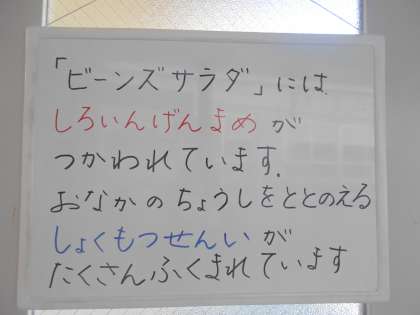 「ビーンズサラダ」には
しろいんげんまめが
つかわれています.
おなかのちょうしをととのえる
しょくもつせんいが
たくさんふくまれています